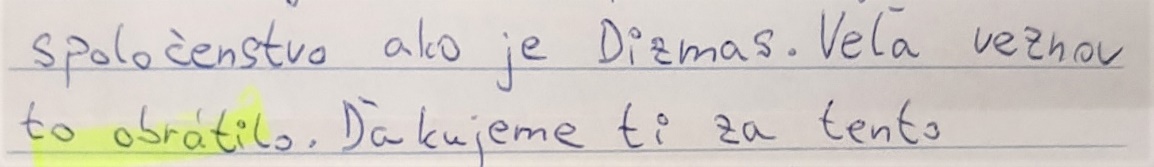 spoločenstvo ako je Dizmas. Veľa veznov
to obrátilo. Ďakujeme ti za tento